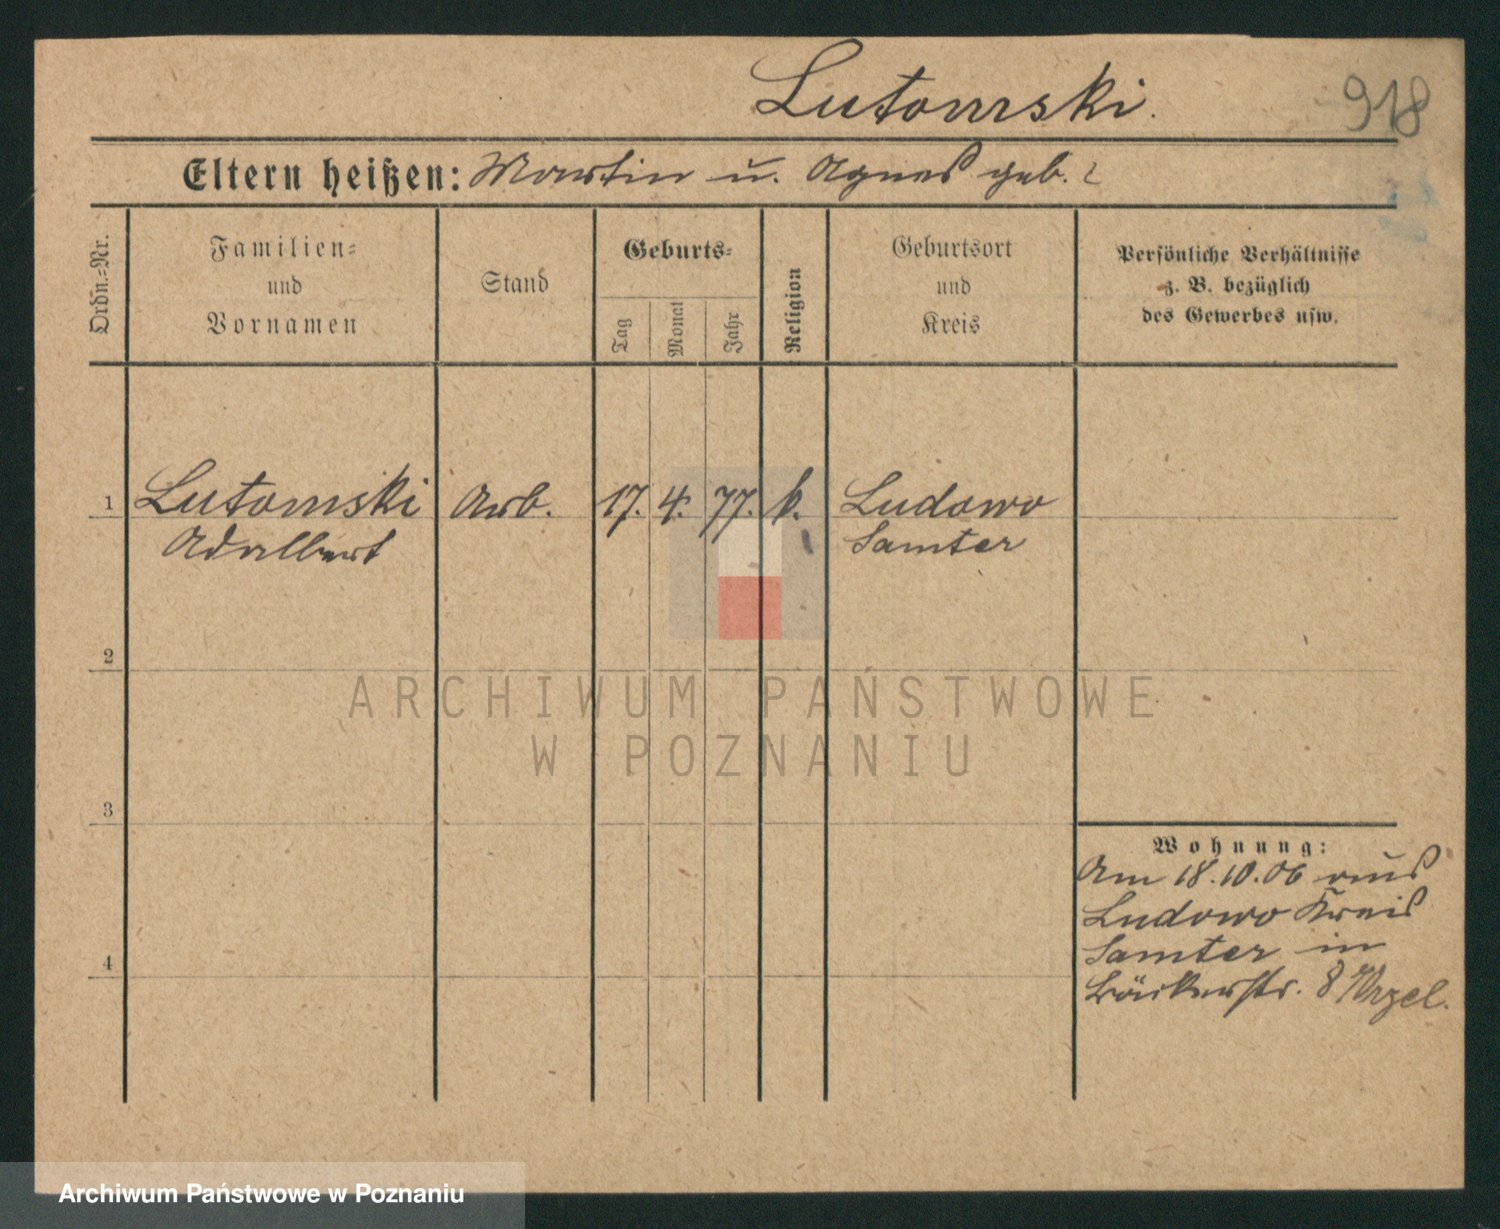 Lutomski.
918
Eltern heißen: Martin u. Agnes geb. ?
Ordn.=Nr.
Familien=
und
Vornamen
Stand
Geburts=
Tag
Monat
Jahr
Religion
Geburtsort
und
Kreis
Persönliche Verhältnisse
z. B. bezüglich
des Gewerbes usw.
1 Lutomski Arb. 17. 4. 77. k. Ludowo
Adalbert Samter
2
3
4
Wohnung:
Am 18.10.06 aus
Ludowo Kreis
Samter in
Bäckerstr. 8
ARCHIWUM PAŃSTWOWE
W POZNANIU
Archiwum Państwowe w Poznaniu